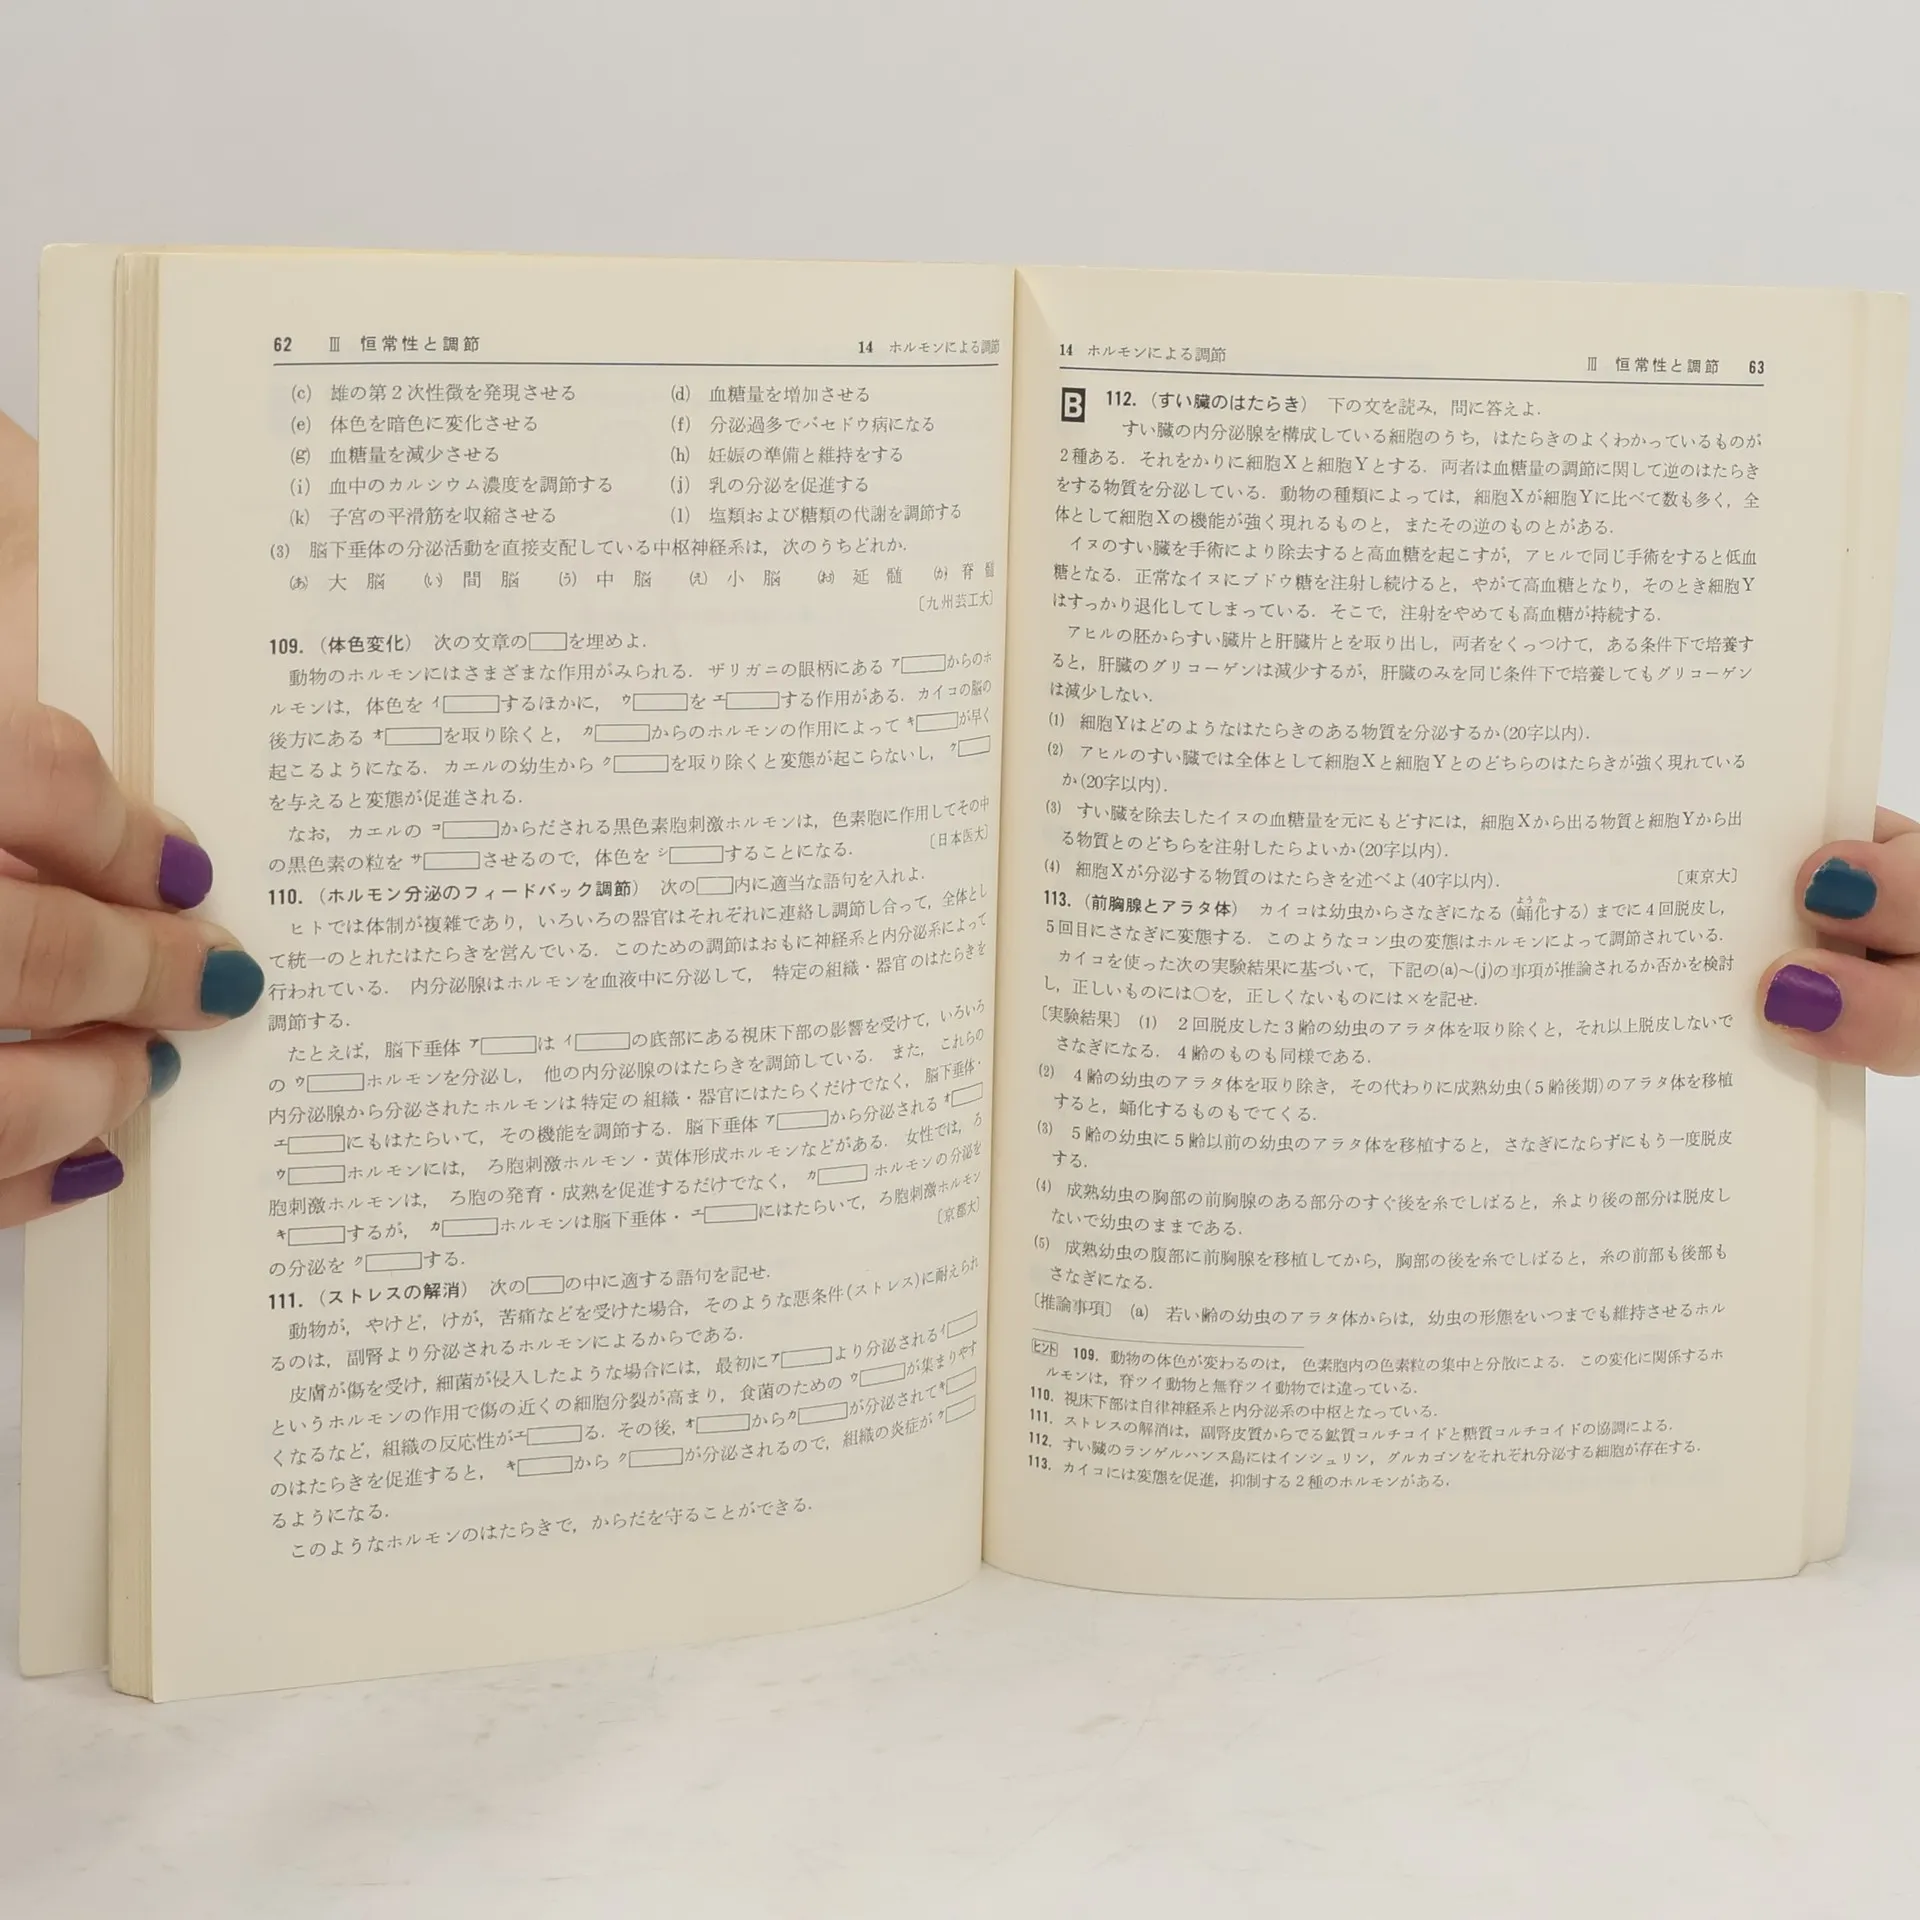 62 Ⅲ 恒常性と調節 14 ホルモンによる調節
(c) 雄の第2次性徴を発現させる (d) 血糖量を増加させる
(e) 体色を暗色に変化させる (f) 分泌過多でバセドウ病になる
(g) 血糖量を減少させる (h) 妊娠の準備と維持をする
(i) 血中のカルシウム濃度を調節する (j) 乳の分泌を促進する
(k) 子宮の平滑筋を収縮させる (l) 塩類および糖類の代謝を調節する
(3) 脳下垂体の分泌活動を直接支配している中枢神経系は，次のうちどれか．
(あ) 大脳 (い) 間脳 (う) 中脳 (え) 小脳 (お) 延髄 (か) 脊髄
〔九州芸工大〕
109. (体色変化) 次の文章の□を埋めよ．
動物のホルモンにはさまざまな作用がみられる．ザリガニの眼柄にある ア□からのホ
ルモンは，体色を イ□するほかに，ウ□を エ□する作用がある．カイコの脳の
後方にある オ□を取り除くと，カ□からのホルモンの作用によって キ□が早く
起こるようになる．カエルの幼生から ク□を取り除くと変態が起こらないし，ク□
を与えると変態が促進される．
なお，カエルの コ□からだされる黒色素胞刺激ホルモンは，色素胞に作用してその中
の黒色素の粒を サ□させるので，体色を シ□することになる． 〔日本医大〕
110. (ホルモン分泌のフィードバック調節) 次の□内に適当な語句を入れよ．
ヒトでは体制が複雑であり，いろいろの器官はそれぞれに連絡し調節し合って，全体とし
て統一のとれたはたらきを営んでいる．このための調節はおもに神経系と内分泌系によって
行われている．内分泌腺はホルモンを血液中に分泌して，特定の組織・器官のはたらきを
調節する．
たとえば，脳下垂体 ア□は イ□の底部にある視床下部の影響を受けて，いろいろ
の ウ□ホルモンを分泌し，他の内分泌腺のはたらきを調節している．また，これらの
内分泌腺から分泌されたホルモンは特定の組織・器官にはたらくだけでなく，脳下垂体・
エ□にもはたらいて，その機能を調節する．脳下垂体 ア□から分泌される オ□
ウ□ホルモンには，ろ胞刺激ホルモン・黄体形成ホルモンなどがある．女性では，ろ
胞刺激ホルモンは，ろ胞の発育・成熟を促進するだけでなく，カ□ホルモンの分泌を
キ□するが，カ□ホルモンは脳下垂体・エ□にはたらいて，ろ胞刺激ホルモン
の分泌を ク□する． 〔京都大〕
111. (ストレスの解消) 次の□の中に適する語句を記せ．
動物が，やけど，けが，苦痛などを受けた場合，そのような悪条件(ストレス)に耐えられ
るのは，副腎より分泌されるホルモンによるからである．
皮膚が傷を受け，細菌が侵入したような場合には，最初に ア□より分泌される イ□
というホルモンの作用で傷の近くの細胞分裂が高まり，食菌のための ウ□が集まりやす
くなるなど，組織の反応性が エ□る．その後，オ□から カ□が分泌されて キ□
のはたらきを促進すると，キ□から ク□が分泌されるので，組織の炎症が ク□
るようになる．
このようなホルモンのはたらきで，からだを守ることができる．
14 ホルモンによる調節 Ⅲ 恒常性と調節 63
B 112. (すい臓のはたらき) 下の文を読み，問に答えよ．
すい臓の内分泌腺を構成している細胞のうち，はたらきのよくわかっているものが
2種ある．それをかりに細胞Xと細胞Yとする．両者は血糖量の調節に関して逆のはたらき
をする物質を分泌している．動物の種類によっては，細胞Xが細胞Yに比べて数も多く，全
体として細胞Xの機能が強く現れるものと，またその逆のものとがある．
イヌのすい臓を手術により除去すると高血糖を起こすが，アヒルで同じ手術をすると低血
糖となる．正常なイヌにブドウ糖を注射し続けると，やがて高血糖となり，そのとき細胞Y
はすっかり退化してしまっている．そこで，注射をやめても高血糖が持続する．
アヒルの胚からすい臓片と肝臓片とを取り出し，両者をくっつけて，ある条件下で培養す
ると，肝臓のグリコーゲンは減少するが，肝臓のみを同じ条件下で培養してもグリコーゲン
は減少しない．
(1) 細胞Yはどのようなはたらきのある物質を分泌するか(20字以内)．
(2) アヒルのすい臓では全体として細胞Xと細胞Yとのどちらのはたらきが強く現れている
か(20字以内)．
(3) すい臓を除去したイヌの血糖量を元にもどすには，細胞Xから出る物質と細胞Yから出
る物質とのどちらを注射したらよいか(20字以内)．
(4) 細胞Xが分泌する物質のはたらきを述べよ(40字以内)． 〔東京大〕
113. (前胸腺とアラタ体) カイコは幼虫からさなぎになる(蛹化する)までに4回脱皮し，
ようか
5回目にさなぎに変態する．このようなコン虫の変態はホルモンによって調節されている．
カイコを使った次の実験結果に基づいて，下記の(a)～(j)の事項が推論されるか否かを検討
し，正しいものには○を，正しくないものには×を記せ．
〔実験結果〕 (1) 2回脱皮した3齢の幼虫のアラタ体を取り除くと，それ以上脱皮しないで
さなぎになる．4齢のものも同様である．
(2) 4齢の幼虫のアラタ体を取り除き，その代わりに成熟幼虫(5齢後期)のアラタ体を移植
すると，蛹化するものもでてくる．
(3) 5齢の幼虫に5齢以前の幼虫のアラタ体を移植すると，さなぎにならずにもう一度脱皮
する．
(4) 成熟幼虫の胸部の前胸腺のある部分のすぐ後を糸でしばると，糸より後の部分は脱皮し
ないで幼虫のままである．
(5) 成熟幼虫の腹部に前胸腺を移植してから，胸部の後を糸でしばると，糸の前部も後部も
さなぎになる．
〔推論事項〕 (a) 若い齢の幼虫のアラタ体からは，幼虫の形態をいつまでも維持させるホル
ヒント 109. 動物の体色が変わるのは，色素胞内の色素粒の集中と分散による．この変化に関係するホ
ルモンは，脊ツイ動物と無脊ツイ動物では違っている．
110. 視床下部は自律神経系と内分泌系の中枢となっている．
111. ストレスの解消は，副腎皮質からでる鉱質コルチコイドと糖質コルチコイドの協調による．
112. すい臓のランゲルハンス島にはインシュリン，グルカゴンをそれぞれ分泌する細胞が存在する．
113. カイコには変態を促進，抑制する2種のホルモンがある．